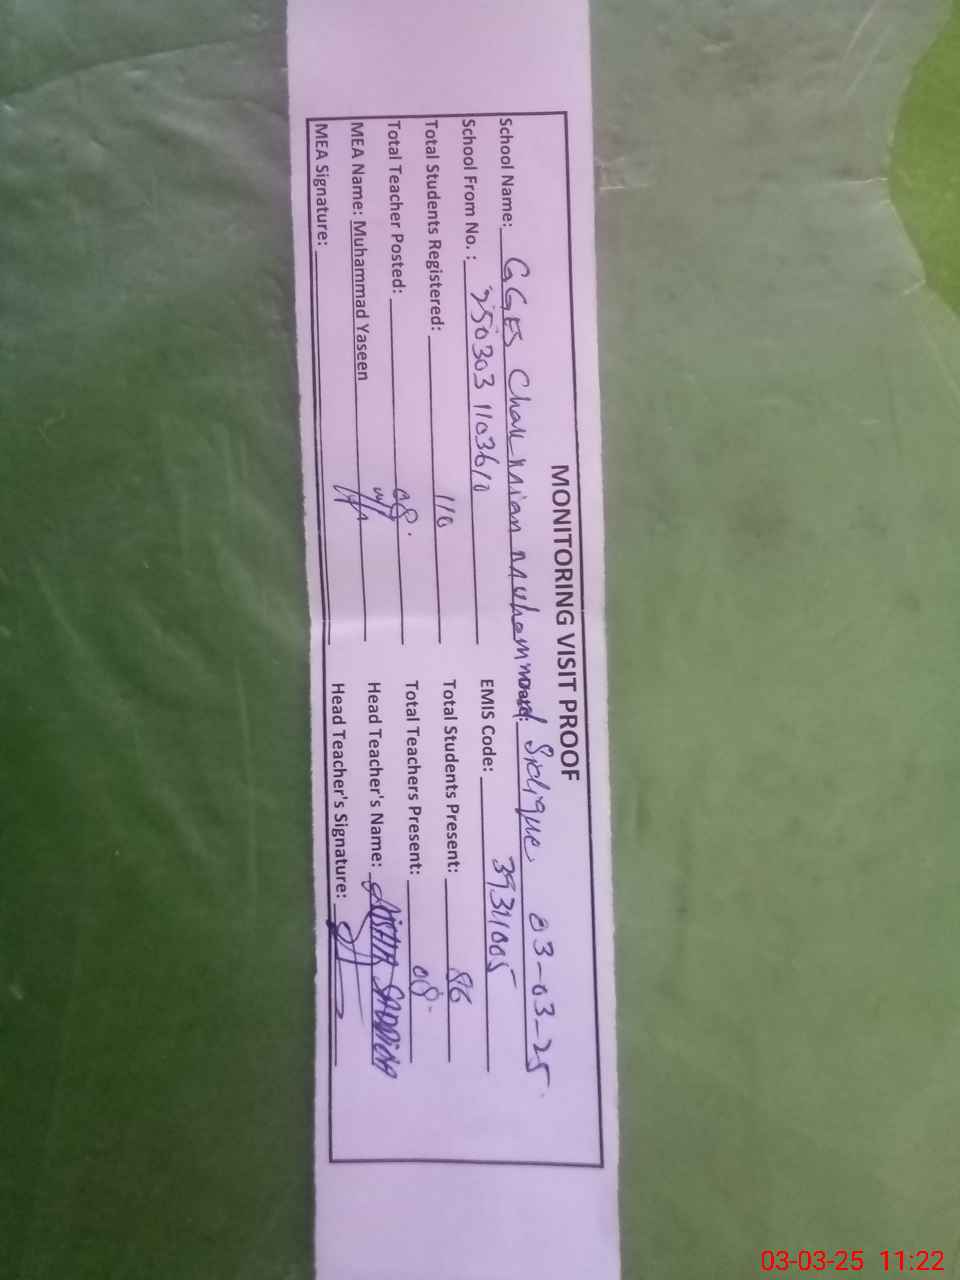 MONITORING VISIT PROOF
School Name: GGES Chak Mian Muhammad Sidique 03-03-25
School From No. : 2503031103610 EMIS Code: 39311005
Total Students Registered: 110 Total Students Present: 86
Total Teacher Posted: 08 Total Teachers Present: 08
MEA Name: Muhammad Yaseen Head Teacher's Name:
MEA Signature: Head Teacher's Signature:
03-03-25 11:22